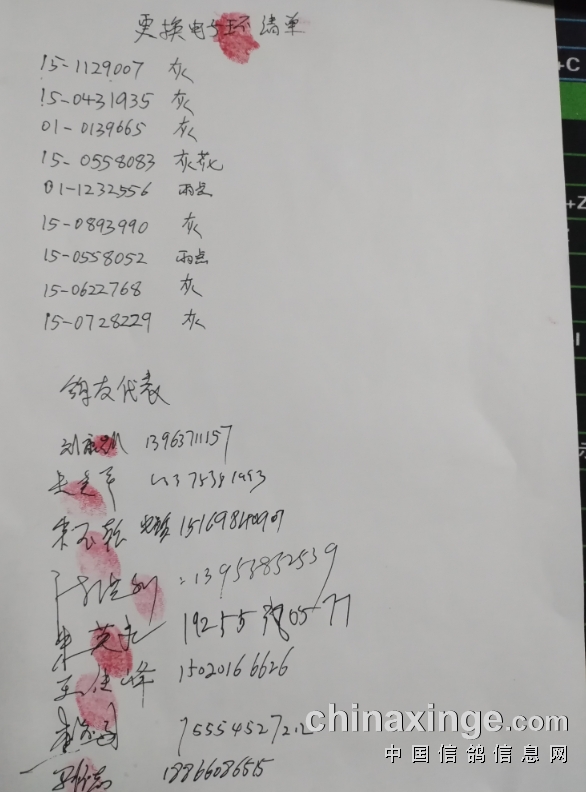 更换电子环清单
15-1129007 灰
15-0431935 灰
01-0139665 灰
15-0558083 灰花
01-1232556 雨点
15-0893990 灰
15-0558052 雨点
15-0622768 灰
15-0728229 灰
鸽友代表
13963711157
15169840901
:13953852539
朱英
王佳峰 15020166626
75554527212
18866086515
chinaxinge.com
中国信鸽信息网
+C
+Z